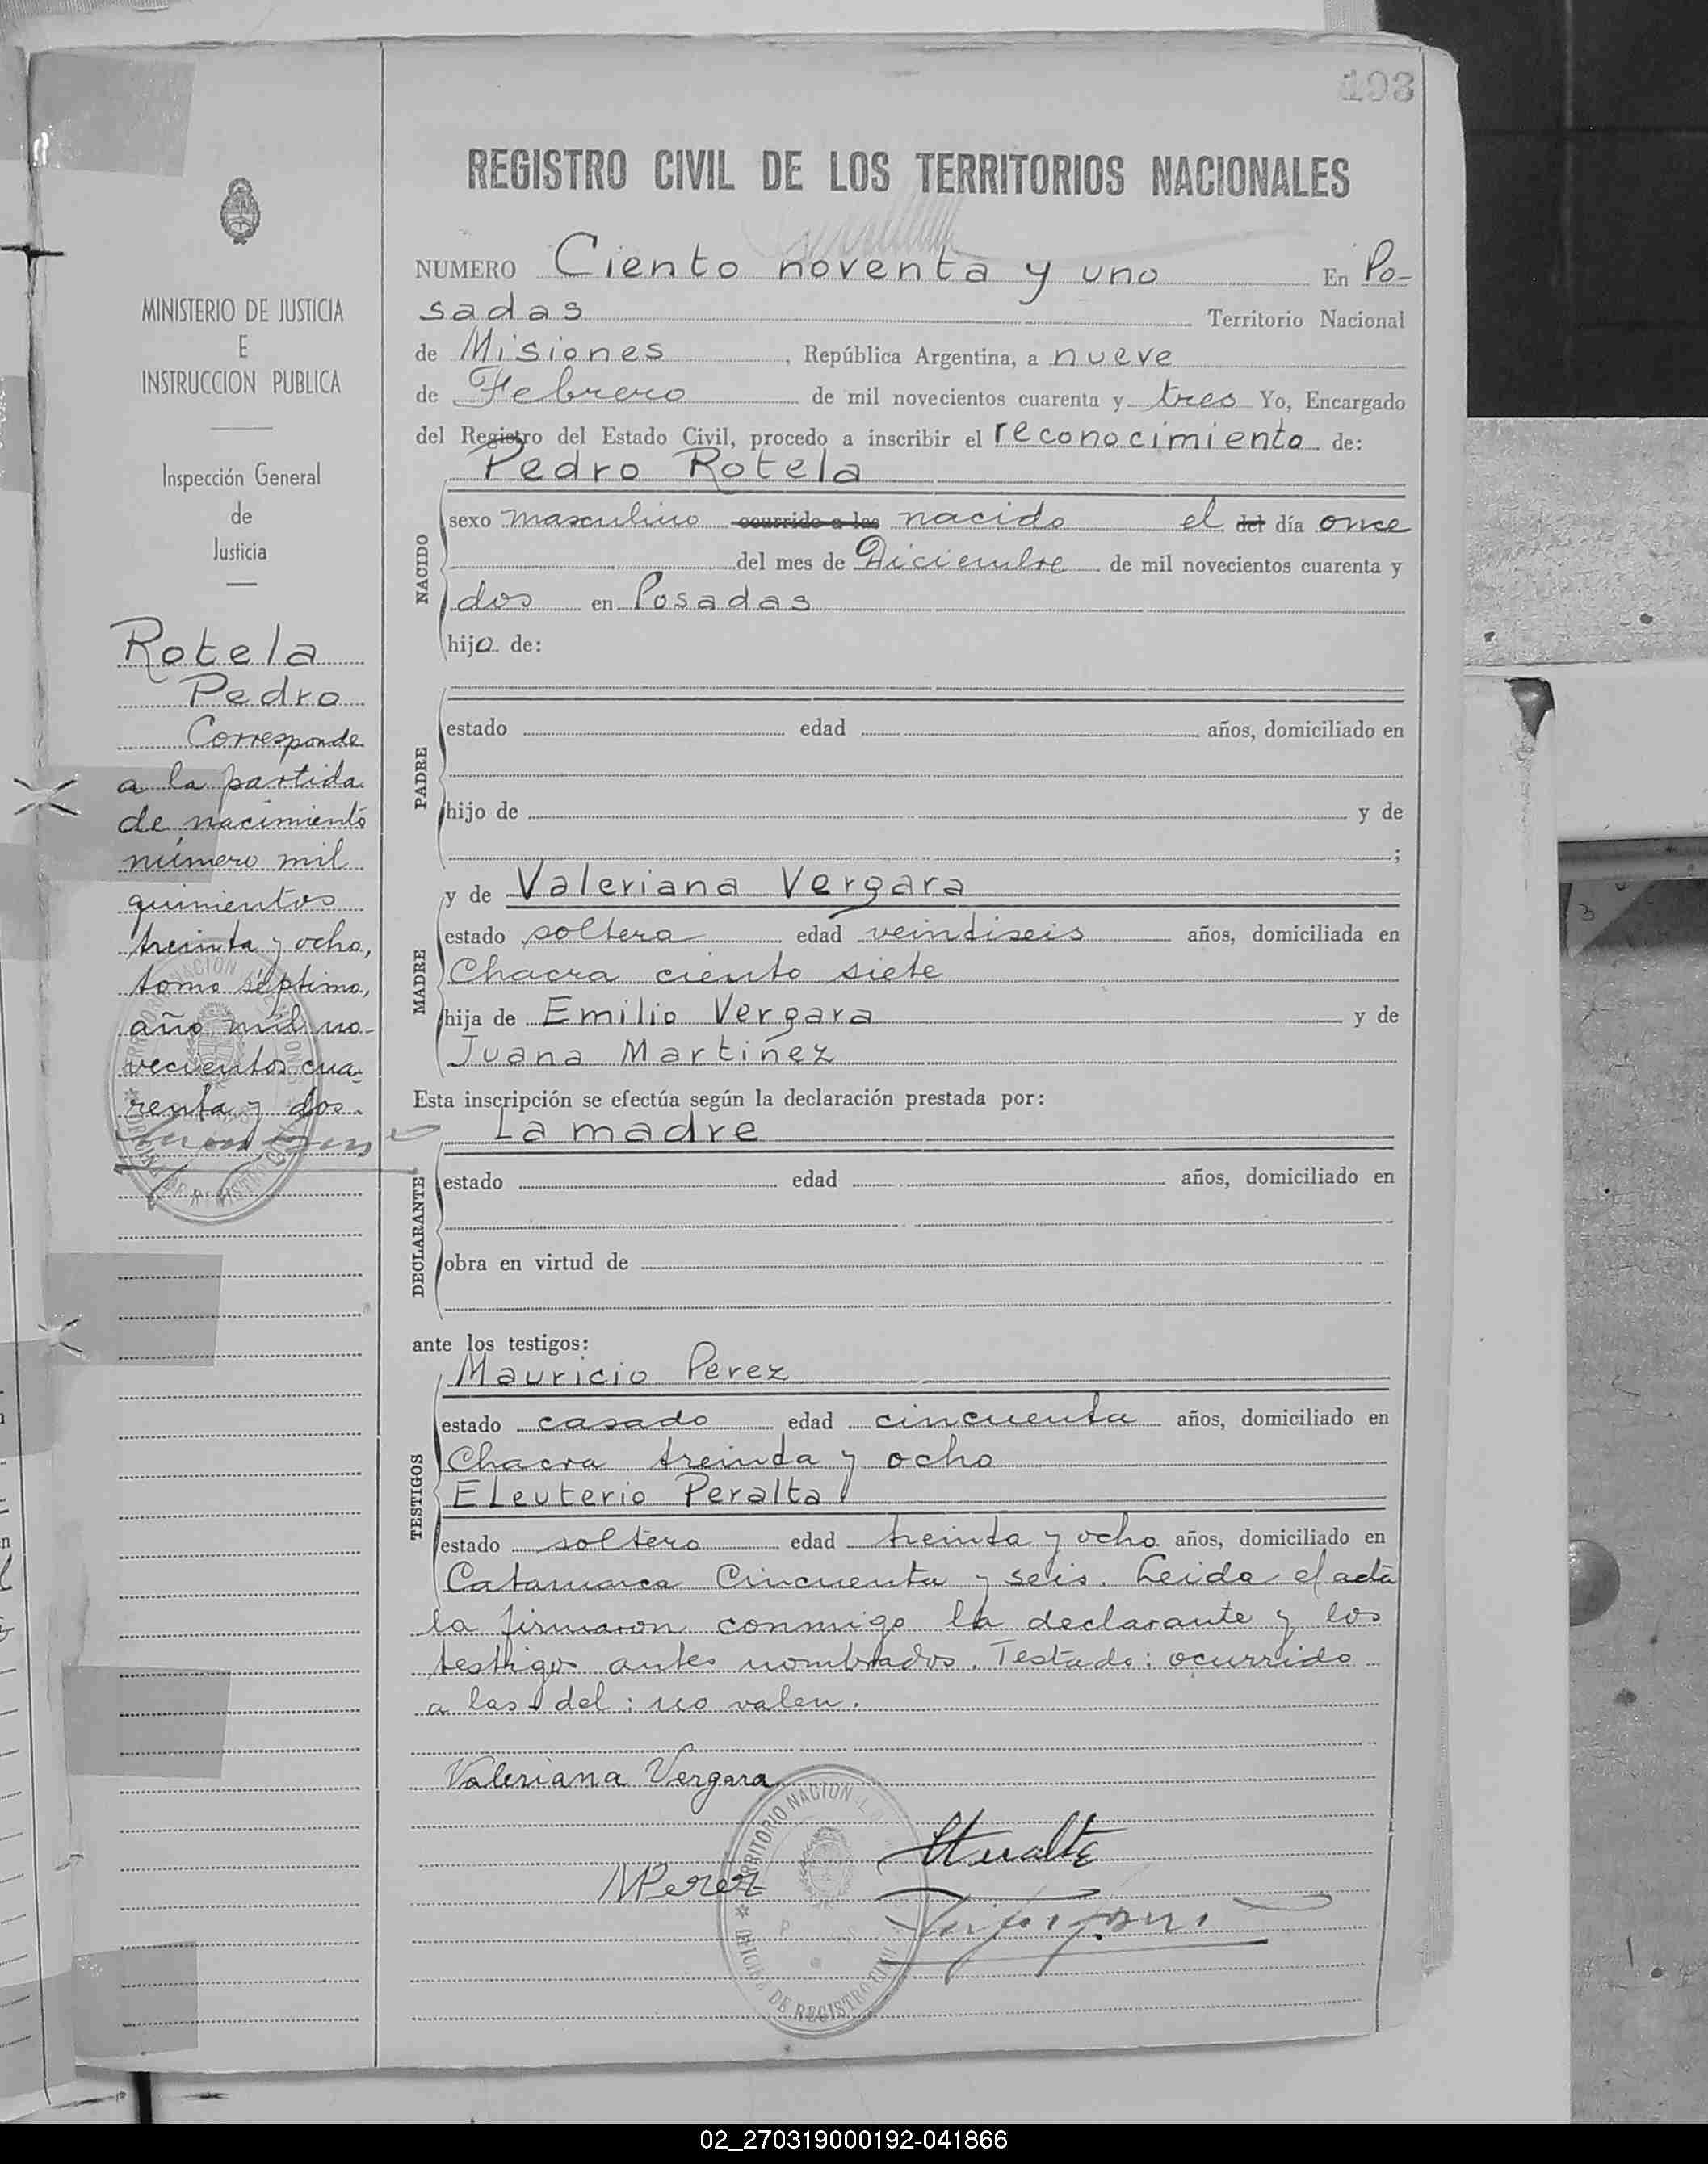 193
REGISTRO CIVIL DE LOS TERRITORIOS NACIONALES
MINISTERIO DE JUSTICIA
E
INSTRUCCION PUBLICA
Inspección General
de
Justicia
Rotela
Pedro
Corresponde
a la partida
de nacimiento
número mil
quinientos
treinta y ocho,
tomo séptimo,
año mil no-
vecientos cua-
renta y dos.
NUMERO Ciento noventa y uno En Po-
sadas Territorio Nacional
de Misiones, República Argentina, a nueve
de Febrero de mil novecientos cuarenta y tres Yo, Encargado
del Registro del Estado Civil, procedo a inscribir el reconocimiento de:
Pedro Rotela
NACIDO
sexo masculino ocurrido a las nacido el del día once
del mes de Diciembre de mil novecientos cuarenta y
dos en Posadas
hijo de:
PADRE
estado edad años, domiciliado en
hijo de y de
;
MADRE
y de Valeriana Vergara
estado soltera edad veintiseis años, domiciliada en
Chacra ciento siete
hija de Emilio Vergara y de
Juana Martinez
Esta inscripción se efectúa según la declaración prestada por:
La madre
DECLARANTE
estado edad años, domiciliado en
obra en virtud de
ante los testigos:
TESTIGOS
Mauricio Perez
estado casado edad cincuenta años, domiciliado en
Chacra treinda y ocho
Eleuterio Peralta
estado soltero edad treinta y ocho años, domiciliado en
Catamarca Cincuenta y seis. Leida el acta
la firmaron conmigo la declarante y los
testigos antes nombrados. Testado: ocurrido
a las - del: no valen.
Valeriana Vergara
MPerez
TERRITORIO NACIONAL
OFICINA DE REGISTRO CIVIL
02_270319000192-041866